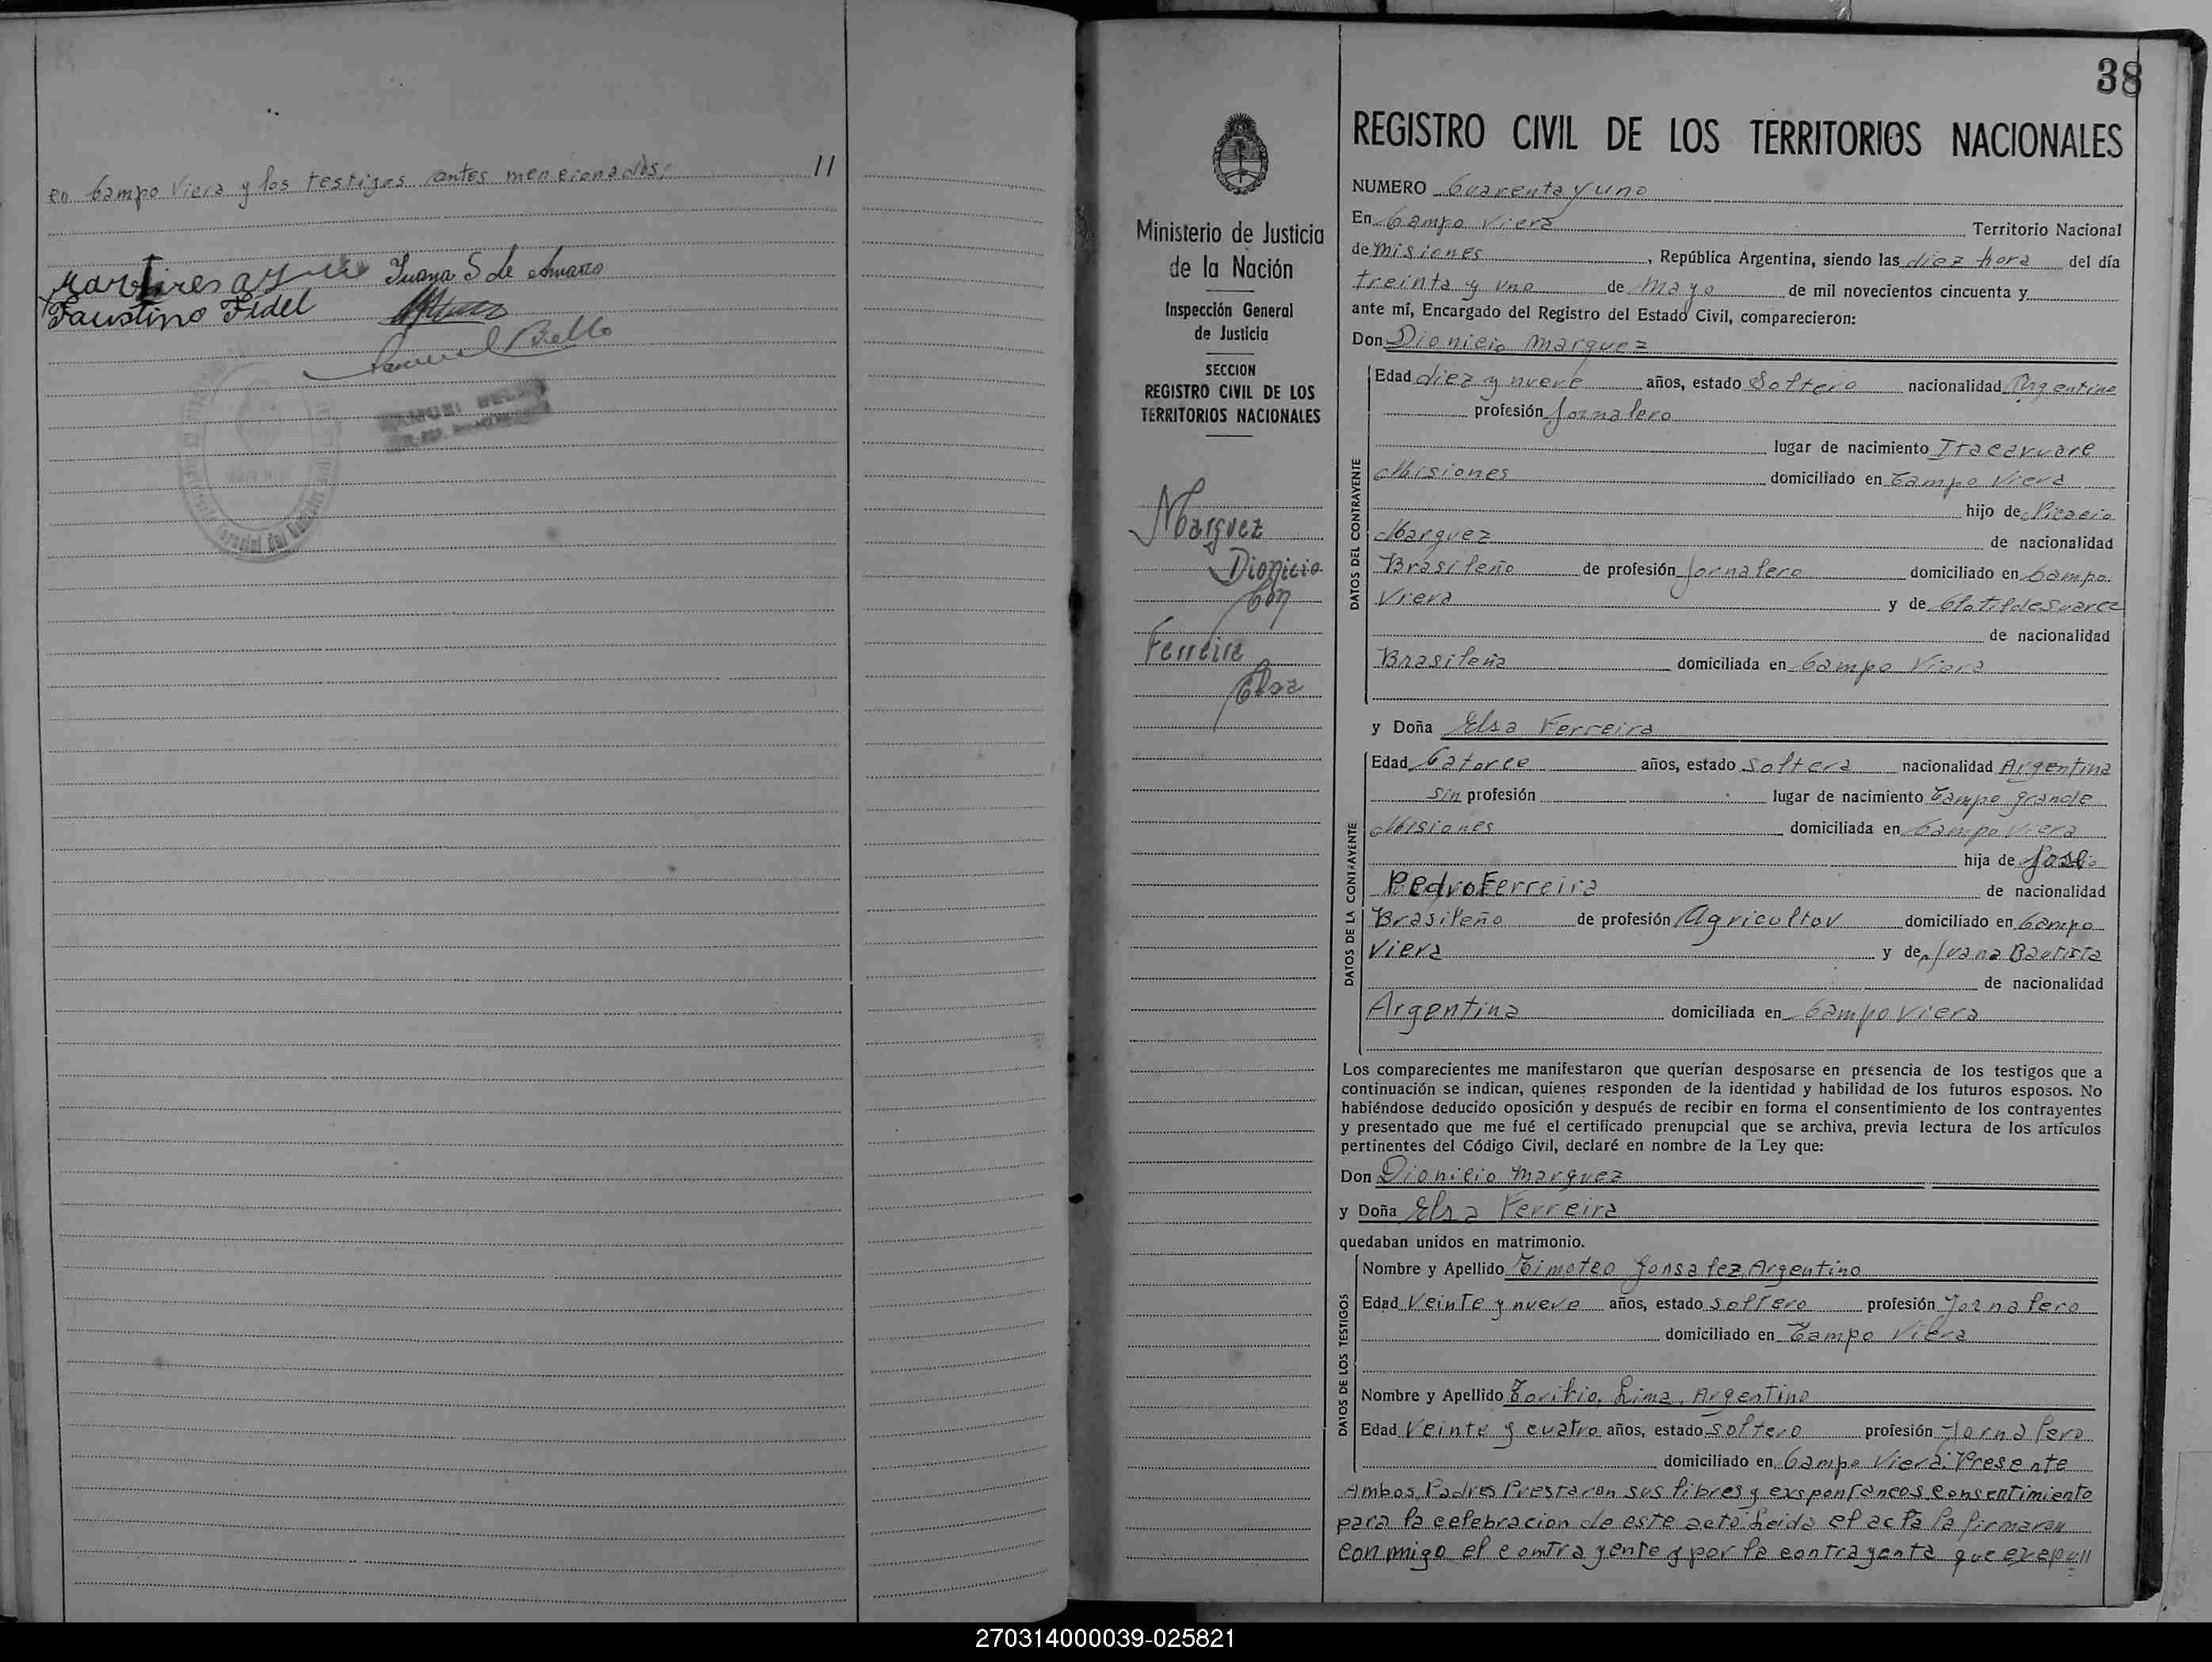 en Campo Viera y los testigos antes mencionados; 11
Juana S de Amaro
Faustino Fidel
Manuel Bello
38
REGISTRO CIVIL DE LOS TERRITORIOS NACIONALES
Ministerio de Justicia
de la Nación
Inspección General
de Justicia
SECCION
REGISTRO CIVIL DE LOS
TERRITORIOS NACIONALES
Marquez
Dionicio
Con
Ferreira
Elsa
NUMERO Cuarenta y uno
En Campo Viera Territorio Nacional
de Misiones, República Argentina, siendo las diez hora del día
treinta y uno de Mayo de mil novecientos cincuenta y
ante mí, Encargado del Registro del Estado Civil, comparecieron:
Don Dionicio Marquez
DATOS DEL CONTRAYENTE
Edad diez y nueve años, estado Soltero nacionalidad Argentino
profesión Jornalero
lugar de nacimiento Itacaruare
Misiones domiciliado en Campo Viera
hijo de
Marquez de nacionalidad
Brasileño de profesión Jornalero domiciliado en Campo
Viera y de Clotilde Suarez
de nacionalidad
Brasileña domiciliada en Campo Viera
y Doña Elsa Ferreira
DATOS DE LA CONTRAYENTE
Edad Catorce años, estado soltera nacionalidad Argentina
sin profesión lugar de nacimiento Campo grande
Misiones domiciliada en Campo Viera
hija de José
Pedro Ferreira de nacionalidad
Brasileño de profesión Agricultor domiciliado en Campo
Viera y de Juana Bautista
de nacionalidad
Argentina domiciliada en Campo Viera
Los comparecientes me manifestaron que querían desposarse en presencia de los testigos que a
continuación se indican, quienes responden de la identidad y habilidad de los futuros esposos. No
habiéndose deducido oposición y después de recibir en forma el consentimiento de los contrayentes
y presentado que me fué el certificado prenupcial que se archiva, previa lectura de los artículos
pertinentes del Código Civil, declaré en nombre de la Ley que:
Don Dionicio Marquez
y Doña Elsa Ferreira
quedaban unidos en matrimonio.
DATOS DE LOS TESTIGOS
Nombre y Apellido Timoteo Gonsalez, Argentino
Edad Veinte y nueve años, estado soltero profesión Jornalero
domiciliado en Campo Viera
Nombre y Apellido Toribio, Lima, Argentino
Edad Veinte y cuatro años, estado soltero profesión Jornalero
domiciliado en Campo Viera. Presente
Ambos Padres Prestaron sus libres y exspontaneos consentimiento
para la celebracion de este acto Leida el acta la firmaron
conmigo el contrayente y por la contrayenta que
270314000039-025821